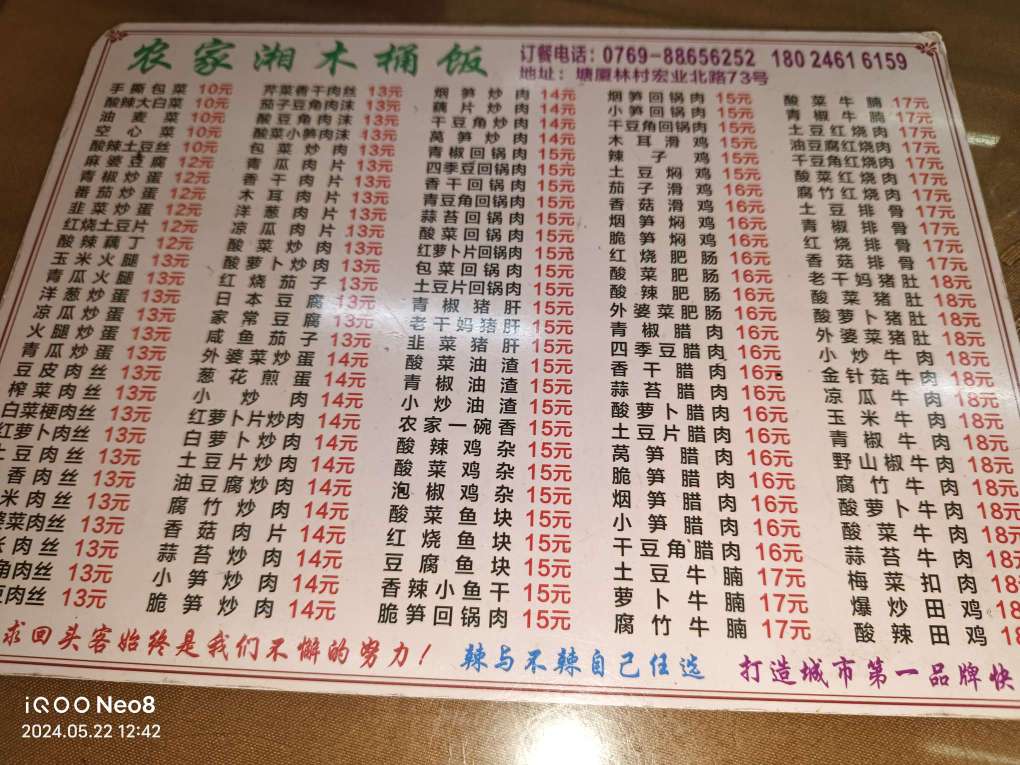 农家湘木桶饭
订餐电话：0769-88656252 18024616159
地址：塘厦林村宏业北路73号
手撕包菜 10元
酸辣大白菜 10元
油麦菜 10元
空心菜 10元
酸辣土豆丝 10元
麻婆豆腐 12元
青椒炒蛋 12元
番茄炒蛋 12元
韭菜炒蛋 12元
红烧土豆片 12元
酸辣藕丁 12元
玉米火腿 13元
青瓜火腿 13元
洋葱炒蛋 13元
凉瓜炒蛋 13元
火腿炒蛋 13元
青瓜炒蛋 13元
豆皮肉丝 13元
榨菜肉丝 13元
白菜梗肉丝 13元
红萝卜肉丝 13元
土豆肉丝 13元
香肉丝 13元
米肉丝 13元
菜肉丝 13元
肉丝 13元
角肉丝 13元
肉丝 13元
芹菜香干肉丝 13元
茄子豆角肉沫 13元
酸豆角肉沫 13元
酸菜小笋肉沫 13元
包菜炒肉 13元
青瓜肉片 13元
香干肉片 13元
木耳肉片 13元
洋葱肉片 13元
凉瓜肉片 13元
酸菜炒肉 13元
酸萝卜炒肉 13元
红烧茄子 13元
日本豆腐 13元
家常豆腐 13元
咸鱼茄子 13元
外婆菜炒蛋 14元
葱花煎蛋 14元
小炒肉 14元
红萝卜片炒肉 14元
白萝卜炒肉 14元
土豆片炒肉 14元
油豆腐炒肉 14元
腐竹炒肉 14元
香菇肉片 14元
蒜苔炒肉 14元
小笋炒肉 14元
脆笋炒肉 14元
烟笋炒肉 14元
藕片炒肉 14元
干豆角炒肉 14元
莴笋炒肉 14元
青椒回锅肉 15元
四季豆回锅肉 15元
香干回锅肉 15元
青豆角回锅肉 15元
蒜苔回锅肉 15元
酸菜回锅肉 15元
红萝卜片回锅肉 15元
包菜回锅肉 15元
土豆片回锅肉 15元
青椒猪肝 15元
老干妈猪肝 15元
韭菜猪肝 15元
酸菜油渣 15元
青椒油渣 15元
小炒油渣 15元
农家一碗香 15元
酸辣鸡杂 15元
酸菜鸡杂 15元
泡椒鸡杂 15元
酸菜鱼块 15元
红烧鱼块 15元
豆腐鱼块 15元
香辣小鱼干 15元
脆笋回锅肉 15元
烟笋回锅肉 15元
小笋回锅肉 15元
干豆角回锅肉 15元
木耳滑鸡 15元
辣子鸡 15元
土豆焖鸡 15元
茄子滑鸡 16元
香菇滑鸡 16元
烟笋焖鸡 16元
脆笋焖鸡 16元
红烧肥肠 16元
酸菜肥肠 16元
酸辣肥肠 16元
外婆菜肥肠 16元
青椒腊肉 16元
四季豆腊肉 16元
香干腊肉 16元
蒜苔腊肉 16元
酸萝卜腊肉 16元
土豆片腊肉 16元
莴笋腊肉 16元
脆笋腊肉 16元
烟笋腊肉 16元
小笋腊肉 16元
干豆角腊肉 16元
土豆牛腩 17元
萝卜牛腩 17元
腐竹牛腩 17元
酸菜牛腩 17元
青椒牛腩 17元
土豆红烧肉 17元
油豆腐红烧肉 17元
干豆角红烧肉 17元
酸菜红烧肉 17元
腐竹红烧肉 17元
土豆排骨 17元
青椒排骨 17元
红烧排骨 17元
香菇排骨 17元
老干妈猪肚 18元
酸菜猪肚 18元
酸萝卜猪肚 18元
外婆菜猪肚 18元
小炒牛肉 18元
金针菇牛肉 18元
凉瓜牛肉 18元
玉米牛肉 18元
青椒牛肉 18元
野山椒牛肉 18元
腐竹牛肉 18元
酸萝卜牛肉 18元
酸菜牛肉 18元
蒜苔牛肉 18元
梅菜扣肉 18
爆炒田鸡 18
酸辣田鸡 18
求回头客始终是我们不懈的努力！ 辣与不辣自己任选 打造城市第一品牌快
iQOO Neo8
2024.05.22 12:42